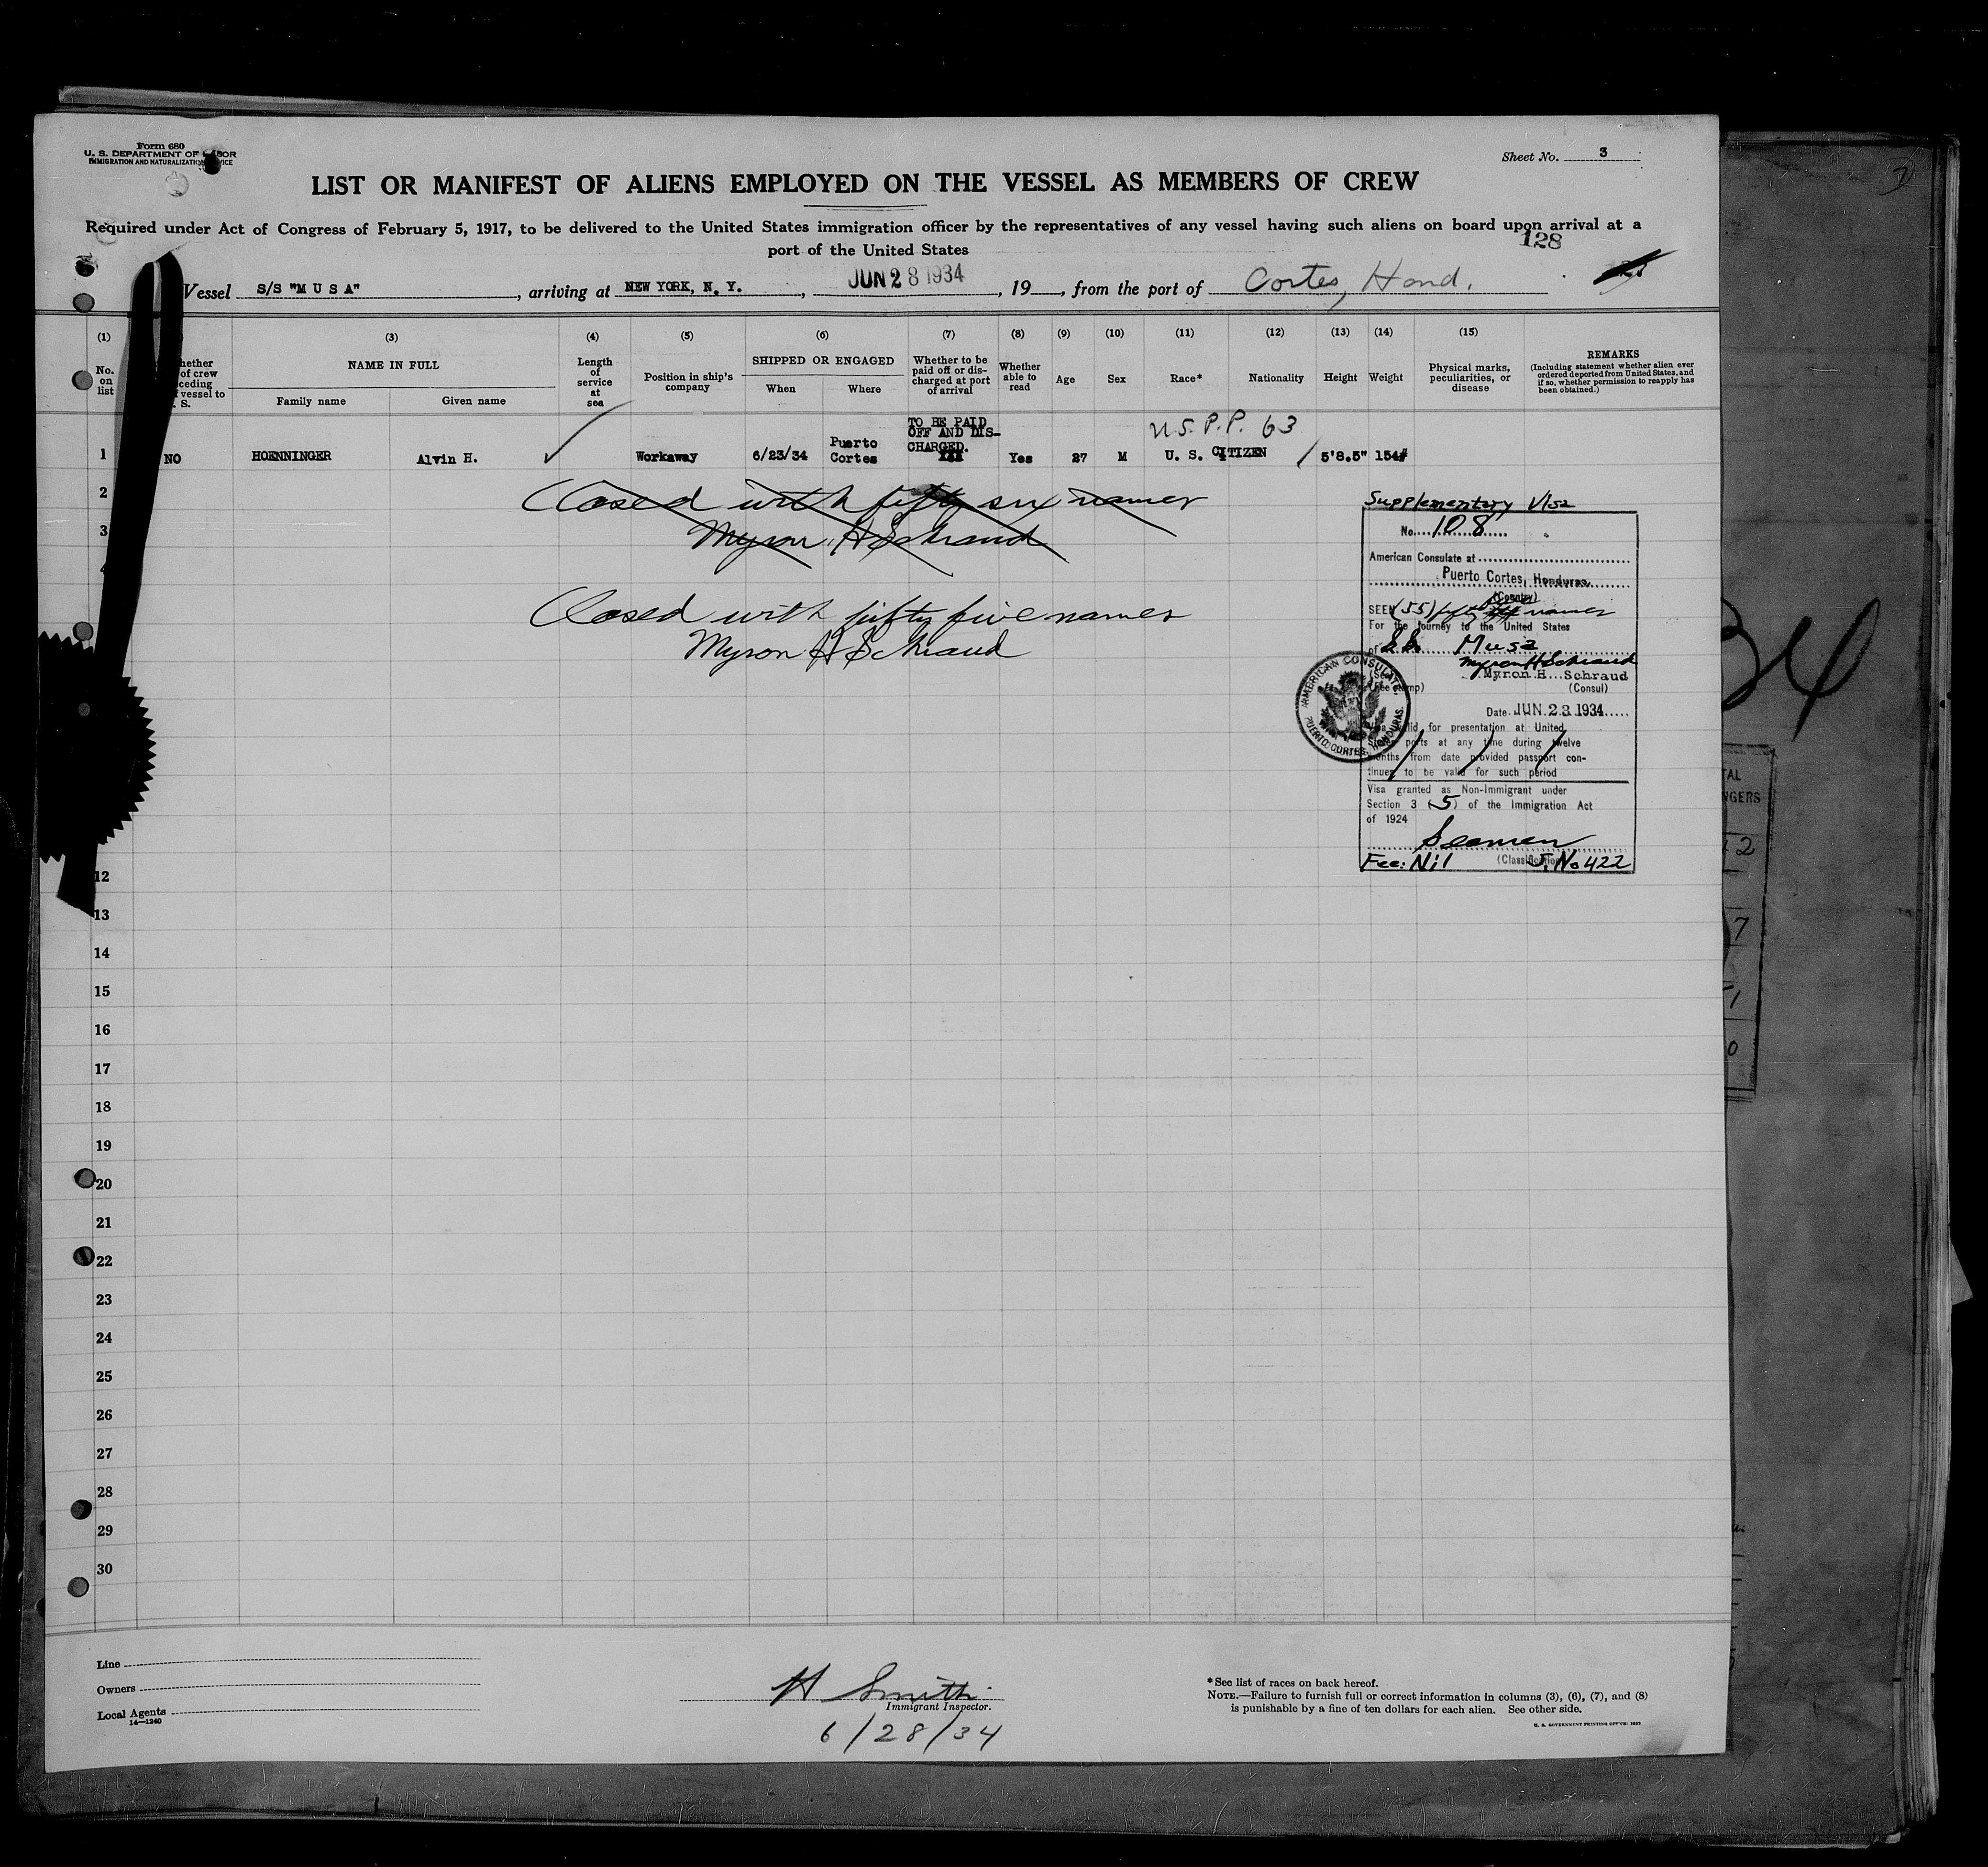 Form 680
U. S. DEPARTMENT OF LABOR
IMMIGRATION AND NATURALIZATION SERVICE
Sheet No. 3
LIST OR MANIFEST OF ALIENS EMPLOYED ON THE VESSEL AS MEMBERS OF CREW
Required under Act of Congress of February 5, 1917, to be delivered to the United States immigration officer by the representatives of any vessel having such aliens on board upon arrival at a
port of the United States
128
Vessel S/S "M U S A", arriving at NEW YORK, N. Y., JUN 28 1934, 19, from the port of Cortes, Hond.
(1) (3) (4) (5) (6) (7) (8) (9) (10) (11) (12) (13) (14) (15)
No. on list
hether of crew ceding vessel to S.
NAME IN FULL
Family name
Given name
Length of service at sea
Position in ship's company
SHIPPED OR ENGAGED
When
Where
Whether to be paid off or discharged at port of arrival
Whether able to read
Age
Sex
Race*
Nationality
Height
Weight
Physical marks, peculiarities, or disease
REMARKS
(Including statement whether alien ever ordered deported from United States, and if so, whether permission to reapply has been obtained.)
TO BE PAID OFF AND DISCHARGED.
U.S. P.P. 63
1 NO HOENNINGER Alvin H. Workaway 6/23/34 Puerto Cortes Yes 27 M U. S. CITIZEN 5'8.5" 154#
2 Closed with fifty six names
3 Myron H Schraud
Closed with fifty five names
Myron H Schraud
Supplementary Visa
No. 108
American Consulate at
Puerto Cortes, Honduras
(Country)
SEEN (55) fifty five names
For the journey to the United States
of SS. Musa
Myron H Schraud
Myron H. Schraud
(Fee stamp) (Consul)
Date JUN 23 1934
Visa valid for presentation at United
States ports at any time during twelve
months from date provided passport con-
tinues to be valid for such period
Visa granted as Non-Immigrant under
Section 3 (5) of the Immigration Act
of 1924
Seamen
(Classification)
Fee: Nil S. No 422
AMERICAN CONSULATE
PUERTO CORTES, HONDURAS.
12
13
14
15
16
17
18
19
20
21
22
23
24
25
26
27
28
29
30
Line
Owners
Local Agents
14—1240
H Smith
Immigrant Inspector.
6/28/34
*See list of races on back hereof.
NOTE.—Failure to furnish full or correct information in columns (3), (6), (7), and (8)
is punishable by a fine of ten dollars for each alien. See other side.
U. S. GOVERNMENT PRINTING OFFICE:
34
TAL
NGERS
2
7
1
0